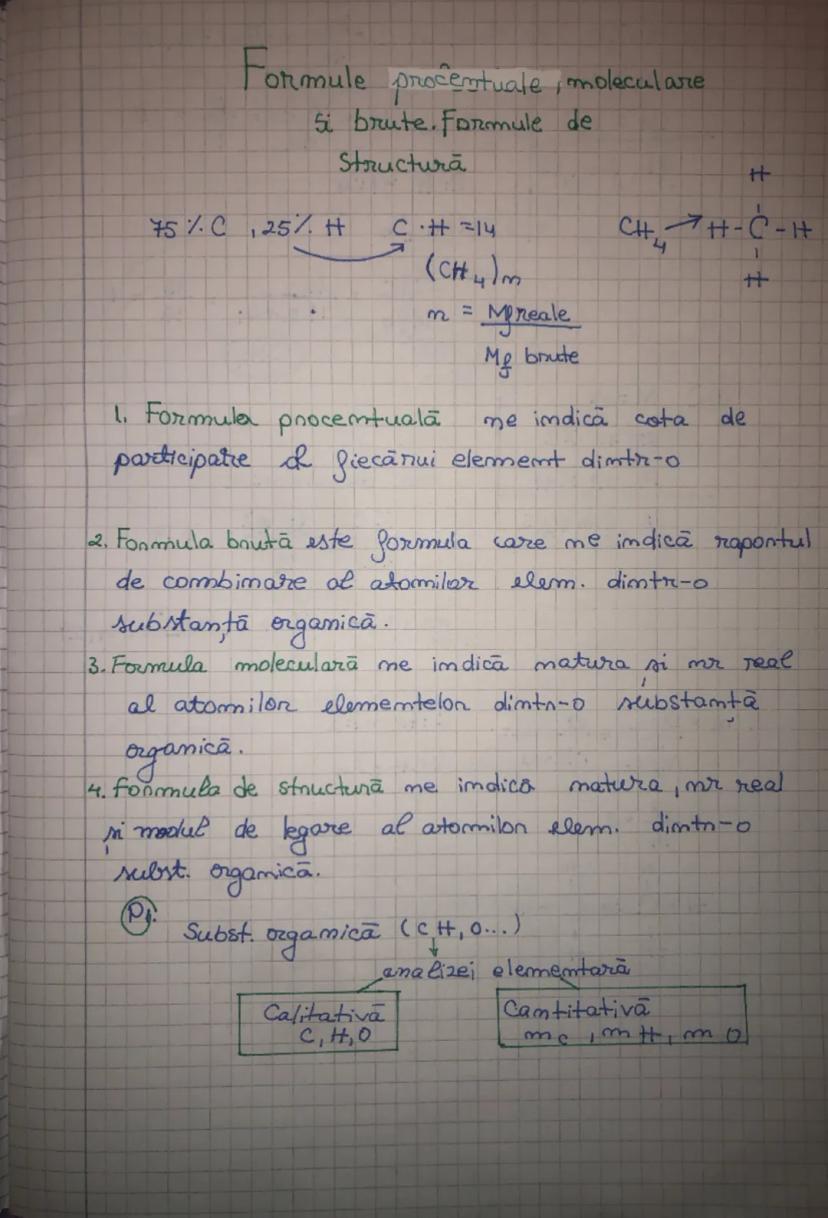 Formule procentuale, moleculare
și brute. Formule de
Structură
75 % C , 25% H C · H = 14
(CH4)n
n = Mf reale
Mf brute
CH4 → H - C - H
H
H
1. Formula procentuală ne indică cota de
participație fiecărui element dintr-o
2. Formula brută este formula care ne indică raportul
de combinare al atomilor elem. dintr-o
substanță organică.
3. Formula moleculară ne indică natura și nr real
al atomilor elementelor dintr-o substanță
organică.
4. Formula de structură ne indică natura, nr real
și modul de legare al atomilor elem. dintr-o
subst. organică.
Subst. organică (C H, O...)
analizei elementară
Calitativă
C, H, O
Cantitativă
mc, m H, m O